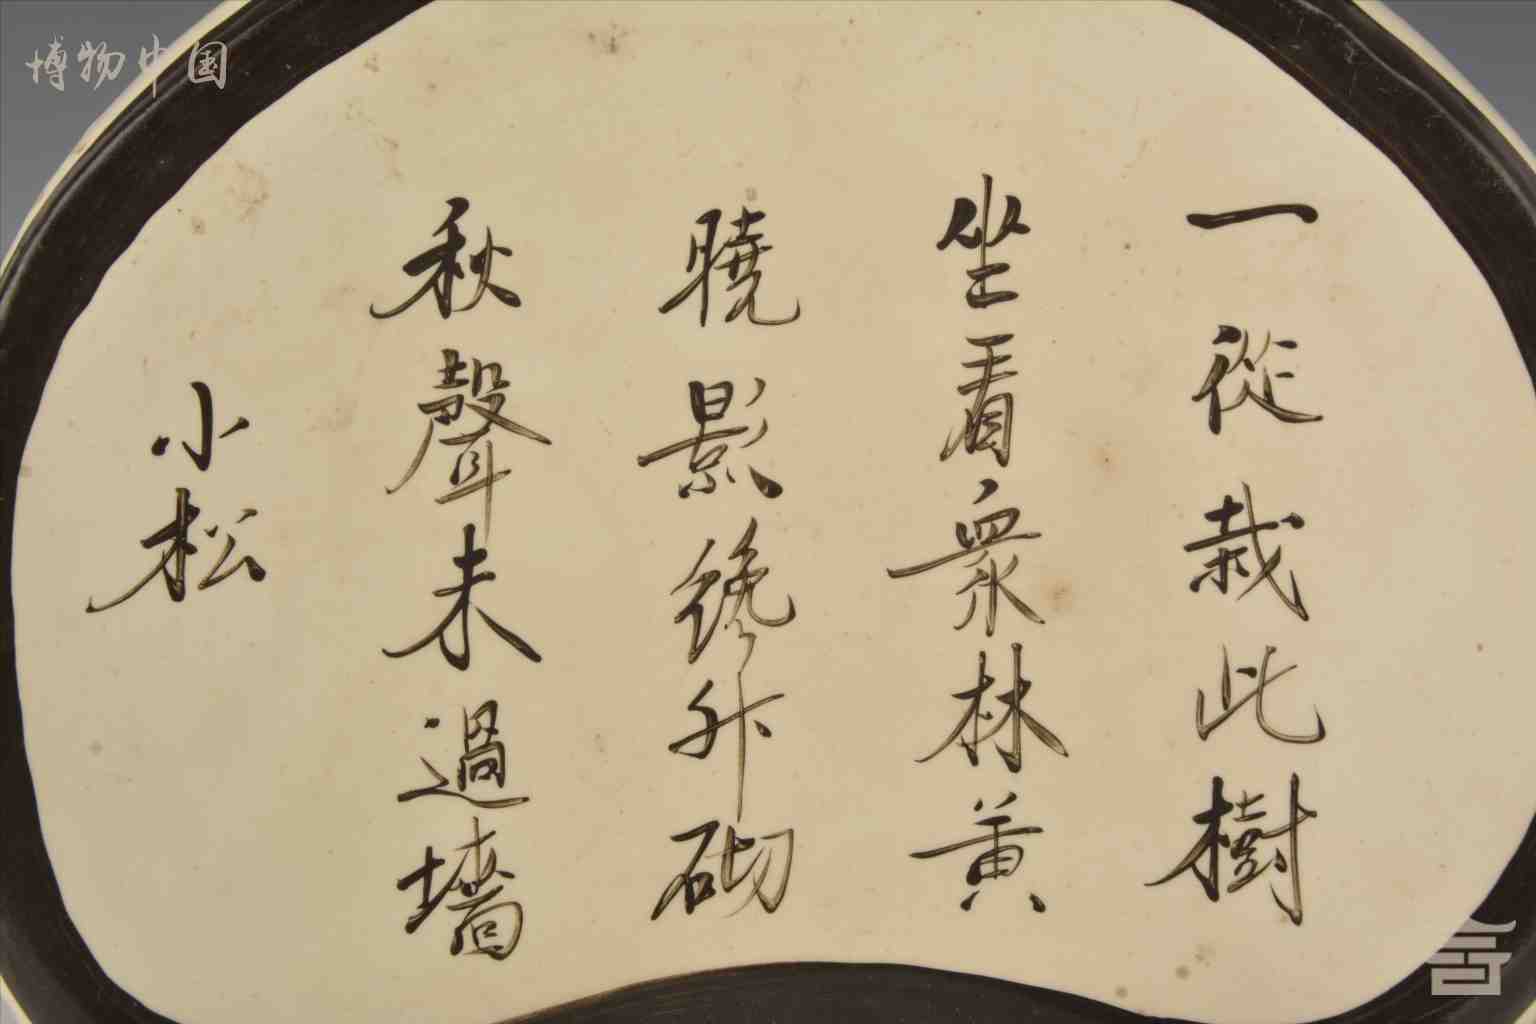 一從栽此樹
坐看衆林黄
曉影纔升砌
秋聲未過墻
小松
博物中国